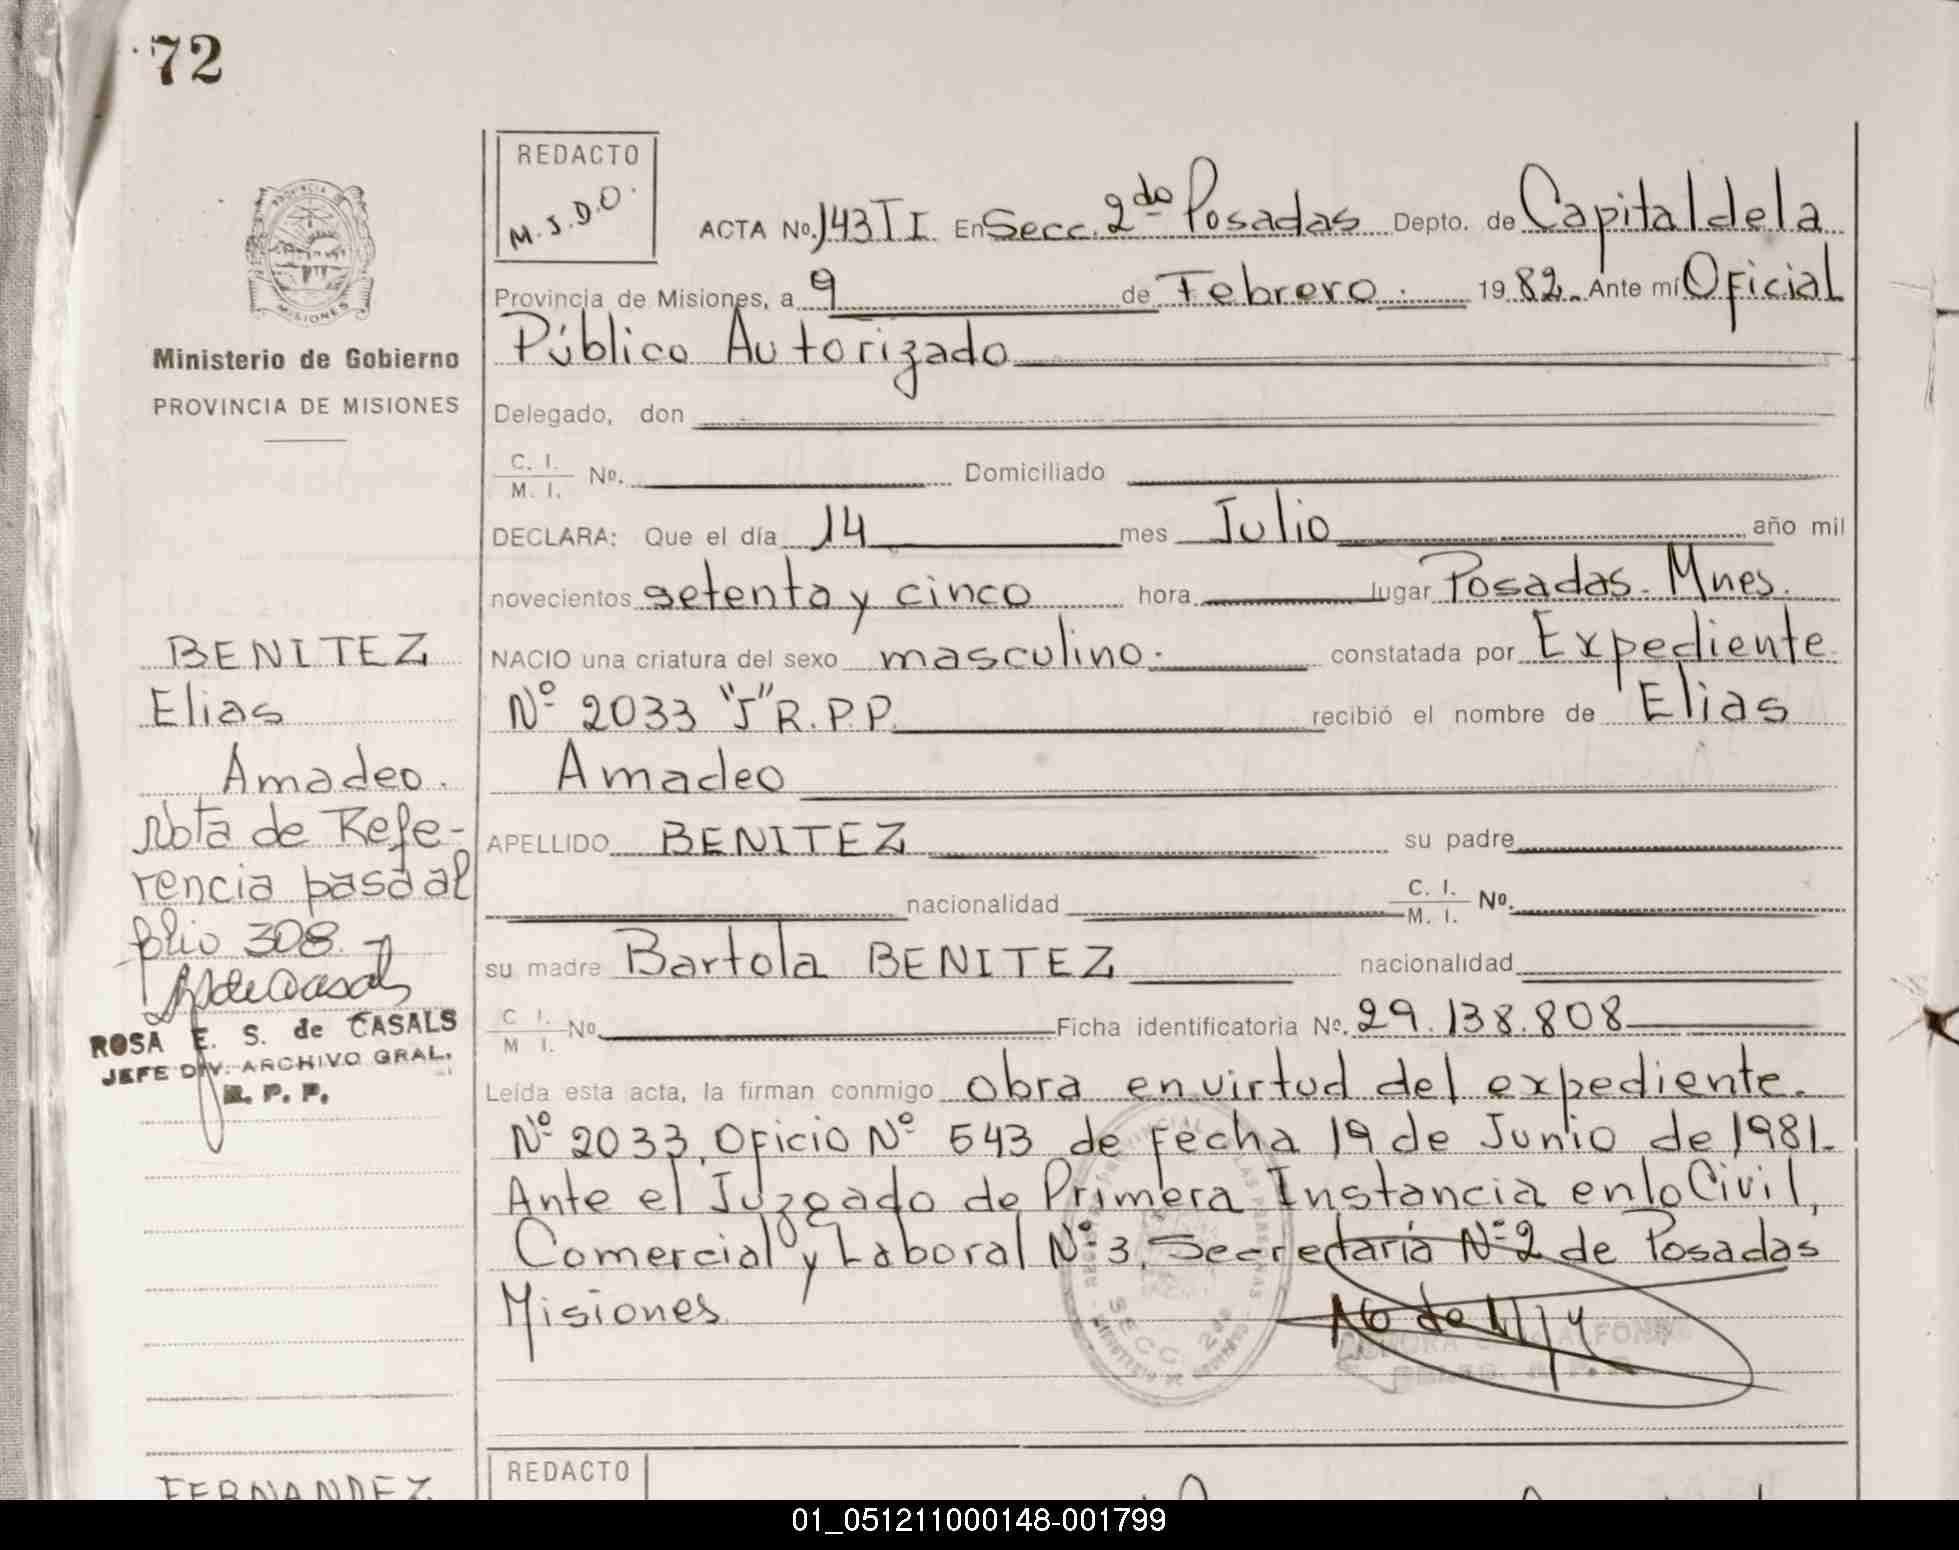 72
REDACTO
M.J.D.O.
ACTA No. 143 T I En Secc. 2do Posadas Depto. de Capital de la
Provincia de Misiones, a 9 de Febrero. 1982. Ante mí Oficial
Público Autorizado
Delegado, don
C. I. M. I. No. Domiciliado
DECLARA: Que el día 14 mes Julio año mil
novecientos setenta y cinco hora lugar Posadas. Mnes.
NACIO una criatura del sexo masculino. constatada por Expediente
Nº 2033 "J" R.P.P. recibió el nombre de Elias
Amadeo
APELLIDO BENITEZ su padre
nacionalidad C. I. M. I. No.
su madre Bartola BENITEZ nacionalidad
C. I. M. I. No. Ficha identificatoria No. 29.138.808
Leída esta acta, la firman conmigo obra en virtud del expediente.
Nº 2033, Oficio Nº 543 de fecha 19 de Junio de 1981.
Ante el Juzgado de Primera Instancia en lo Civil,
Comercial y Laboral Nº 3, Secretaría Nº 2 de Posadas
Misiones
SECC. 2da
PROVINCIA
MISIONES
Ministerio de Gobierno
PROVINCIA DE MISIONES
BENITEZ
Elias
Amadeo.
Nota de Refe-
rencia pasa al
folio 308.
ROSA E. S. de CASALS
JEFE DIV. ARCHIVO GRAL.
R. P. P.
FERNANDEZ
REDACTO
01_051211000148-001799